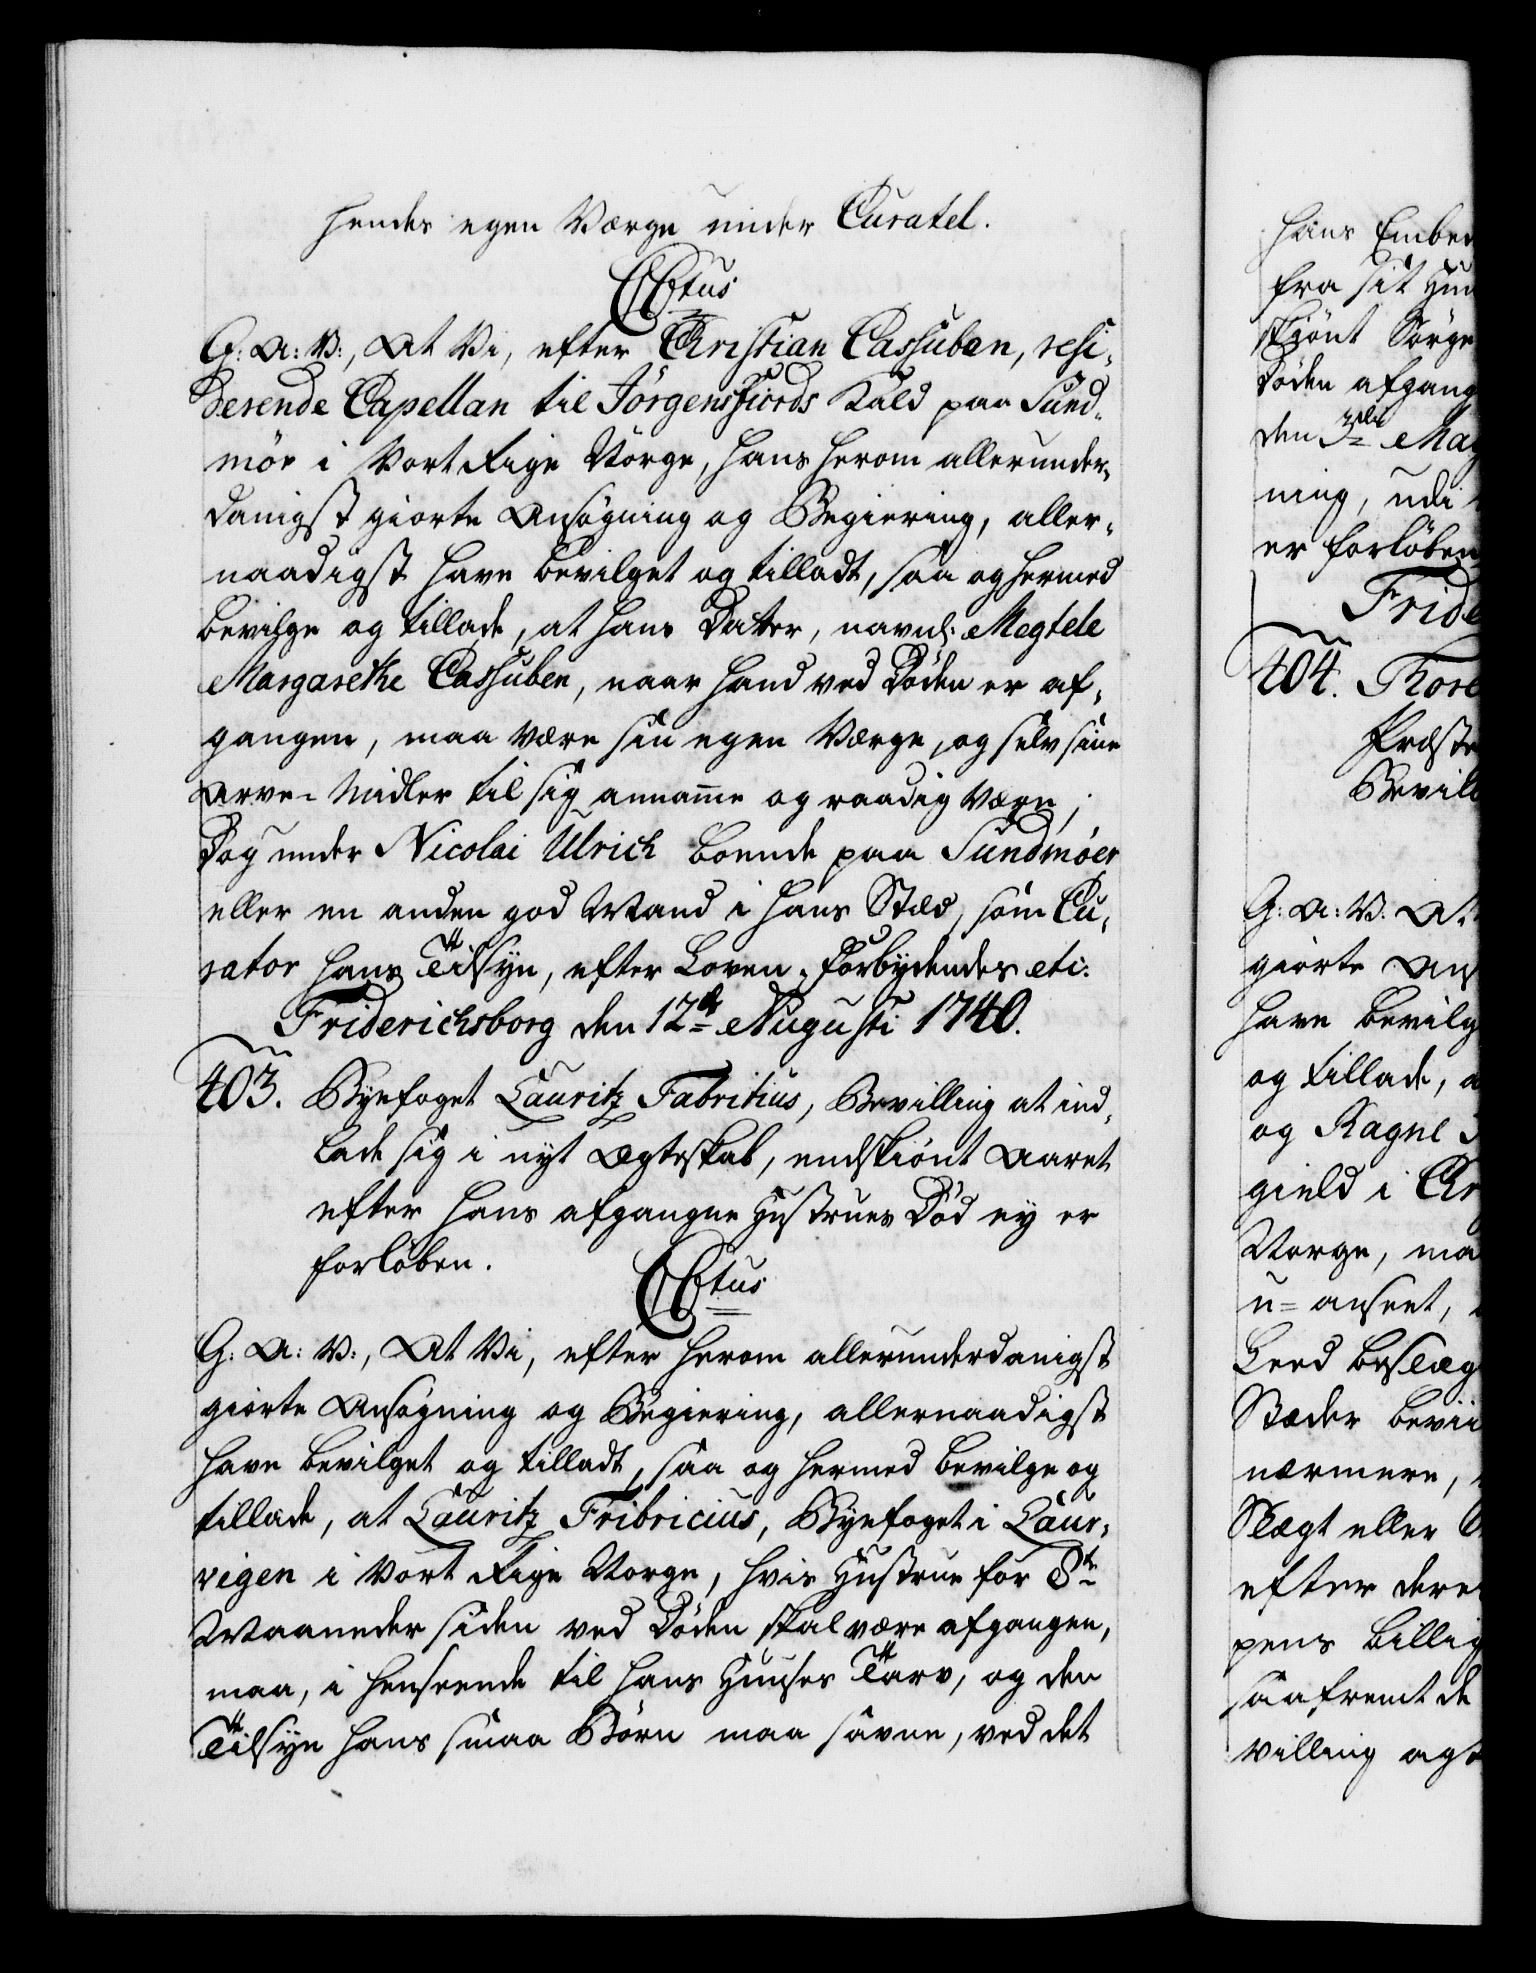 hendes egen Værge under Curatel.
C5tus
G: A: V:, At Vi, efter Christian Cassuben, resi-
derende Capellan til Jörgensfiords Kald paa Sund-
mör i Vort Rige Norge, hans herom allerunder-
danigst giorte Ansögning og Begiering, aller-
naadigst have bevilget og tilladt, saa og hermed
bevilge og tillade, at hans Datter, navnl: Megtele
Margarethe Cassuben, naar hand ved Döden er af-
gangen, maa være sin egen Værge, og selv sine
Arve-Midler til sig annamme og raadig være,
Dog under Nicolai Ulrich boende paa Sundmöer
eller en anden god Mand i hans Stæd, som Cu-
rator hans Tilsyn, efter Loven. Forbydendes etc:
Friderichsborg den 12te Augusti 1740.
403. Byefoget Lauritz Fabritius, Bevilling at ind-
lade sig i nyt Ægteskab, endskiönt Aaret
efter hans afgangne Hustrues Död ey er
forlöben.
C5tus
G: A: V:, At Vi, efter herom allerunderdanigst
giorte Ansögning og Begiering, allernaadigst
have bevilget og tilladt, saa og hermed bevilge og
tillade, at Lauritz Fribricius, Byefoget i Laur-
vigen i Vort Rige Norge, hvis Hustrue for 8te
Maaneder siden ved Döden skal være afgangen,
maa, i henseende til hans Huuses Tarv, og den
Tilsyn hans smaa Börn maa savne, ved det
hans Embe
fra sit Huu
skiönt Sörge
Döden afgang
den 3die May
ning, udi
er forlöben
Fride
404. Thore
Præste
Bevil
G: A: V: At
giorte Ans
have bevilg
og tillade, a
og Ragne
gield i Chr
Norge, ma
u-anseet,
Leed beslæg
Stæder bevii
nærmere,
Slægt eller
efter dere
pens billig
saafremt de
villing agt